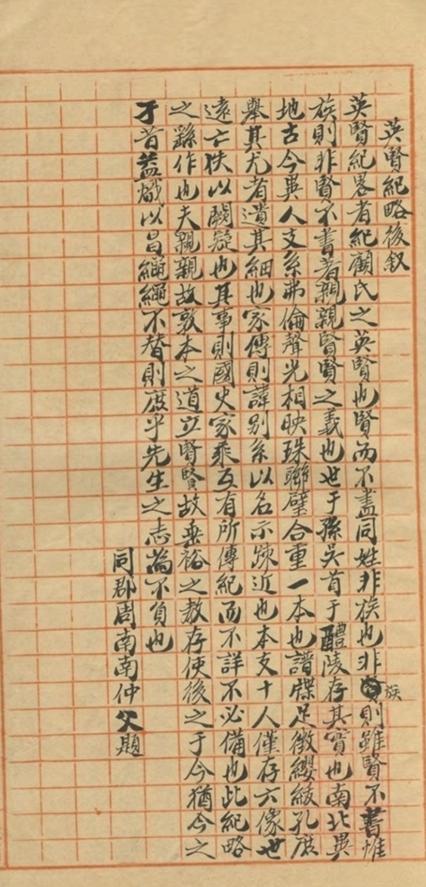 英賢紀略後叙
英賢紀畧者紀顧氏之英賢也賢而不盡同姓非族也非族則雖賢不書惟
族則非賢不書者親親賢賢之義也世于孫吳首于醴陵存其實也南北異
地古今異人支系弗倫聲光相映珠聯璧合重一本也譜牒足徵纓緌孔庶
舉其尤者遺其細也家傳則諱别系以名示疎近也本支十人僅存六像世
遠亡佚以闕疑也其事則國史家乘互有所傳紀而不詳不必備也此紀略
之繇作也夫親親故敦本之道立賢賢故垂裕之教存使後之于今猶今之
于昔益熾以昌繩繩不替則庶乎先生之志為不負也
同郡周南南仲父題